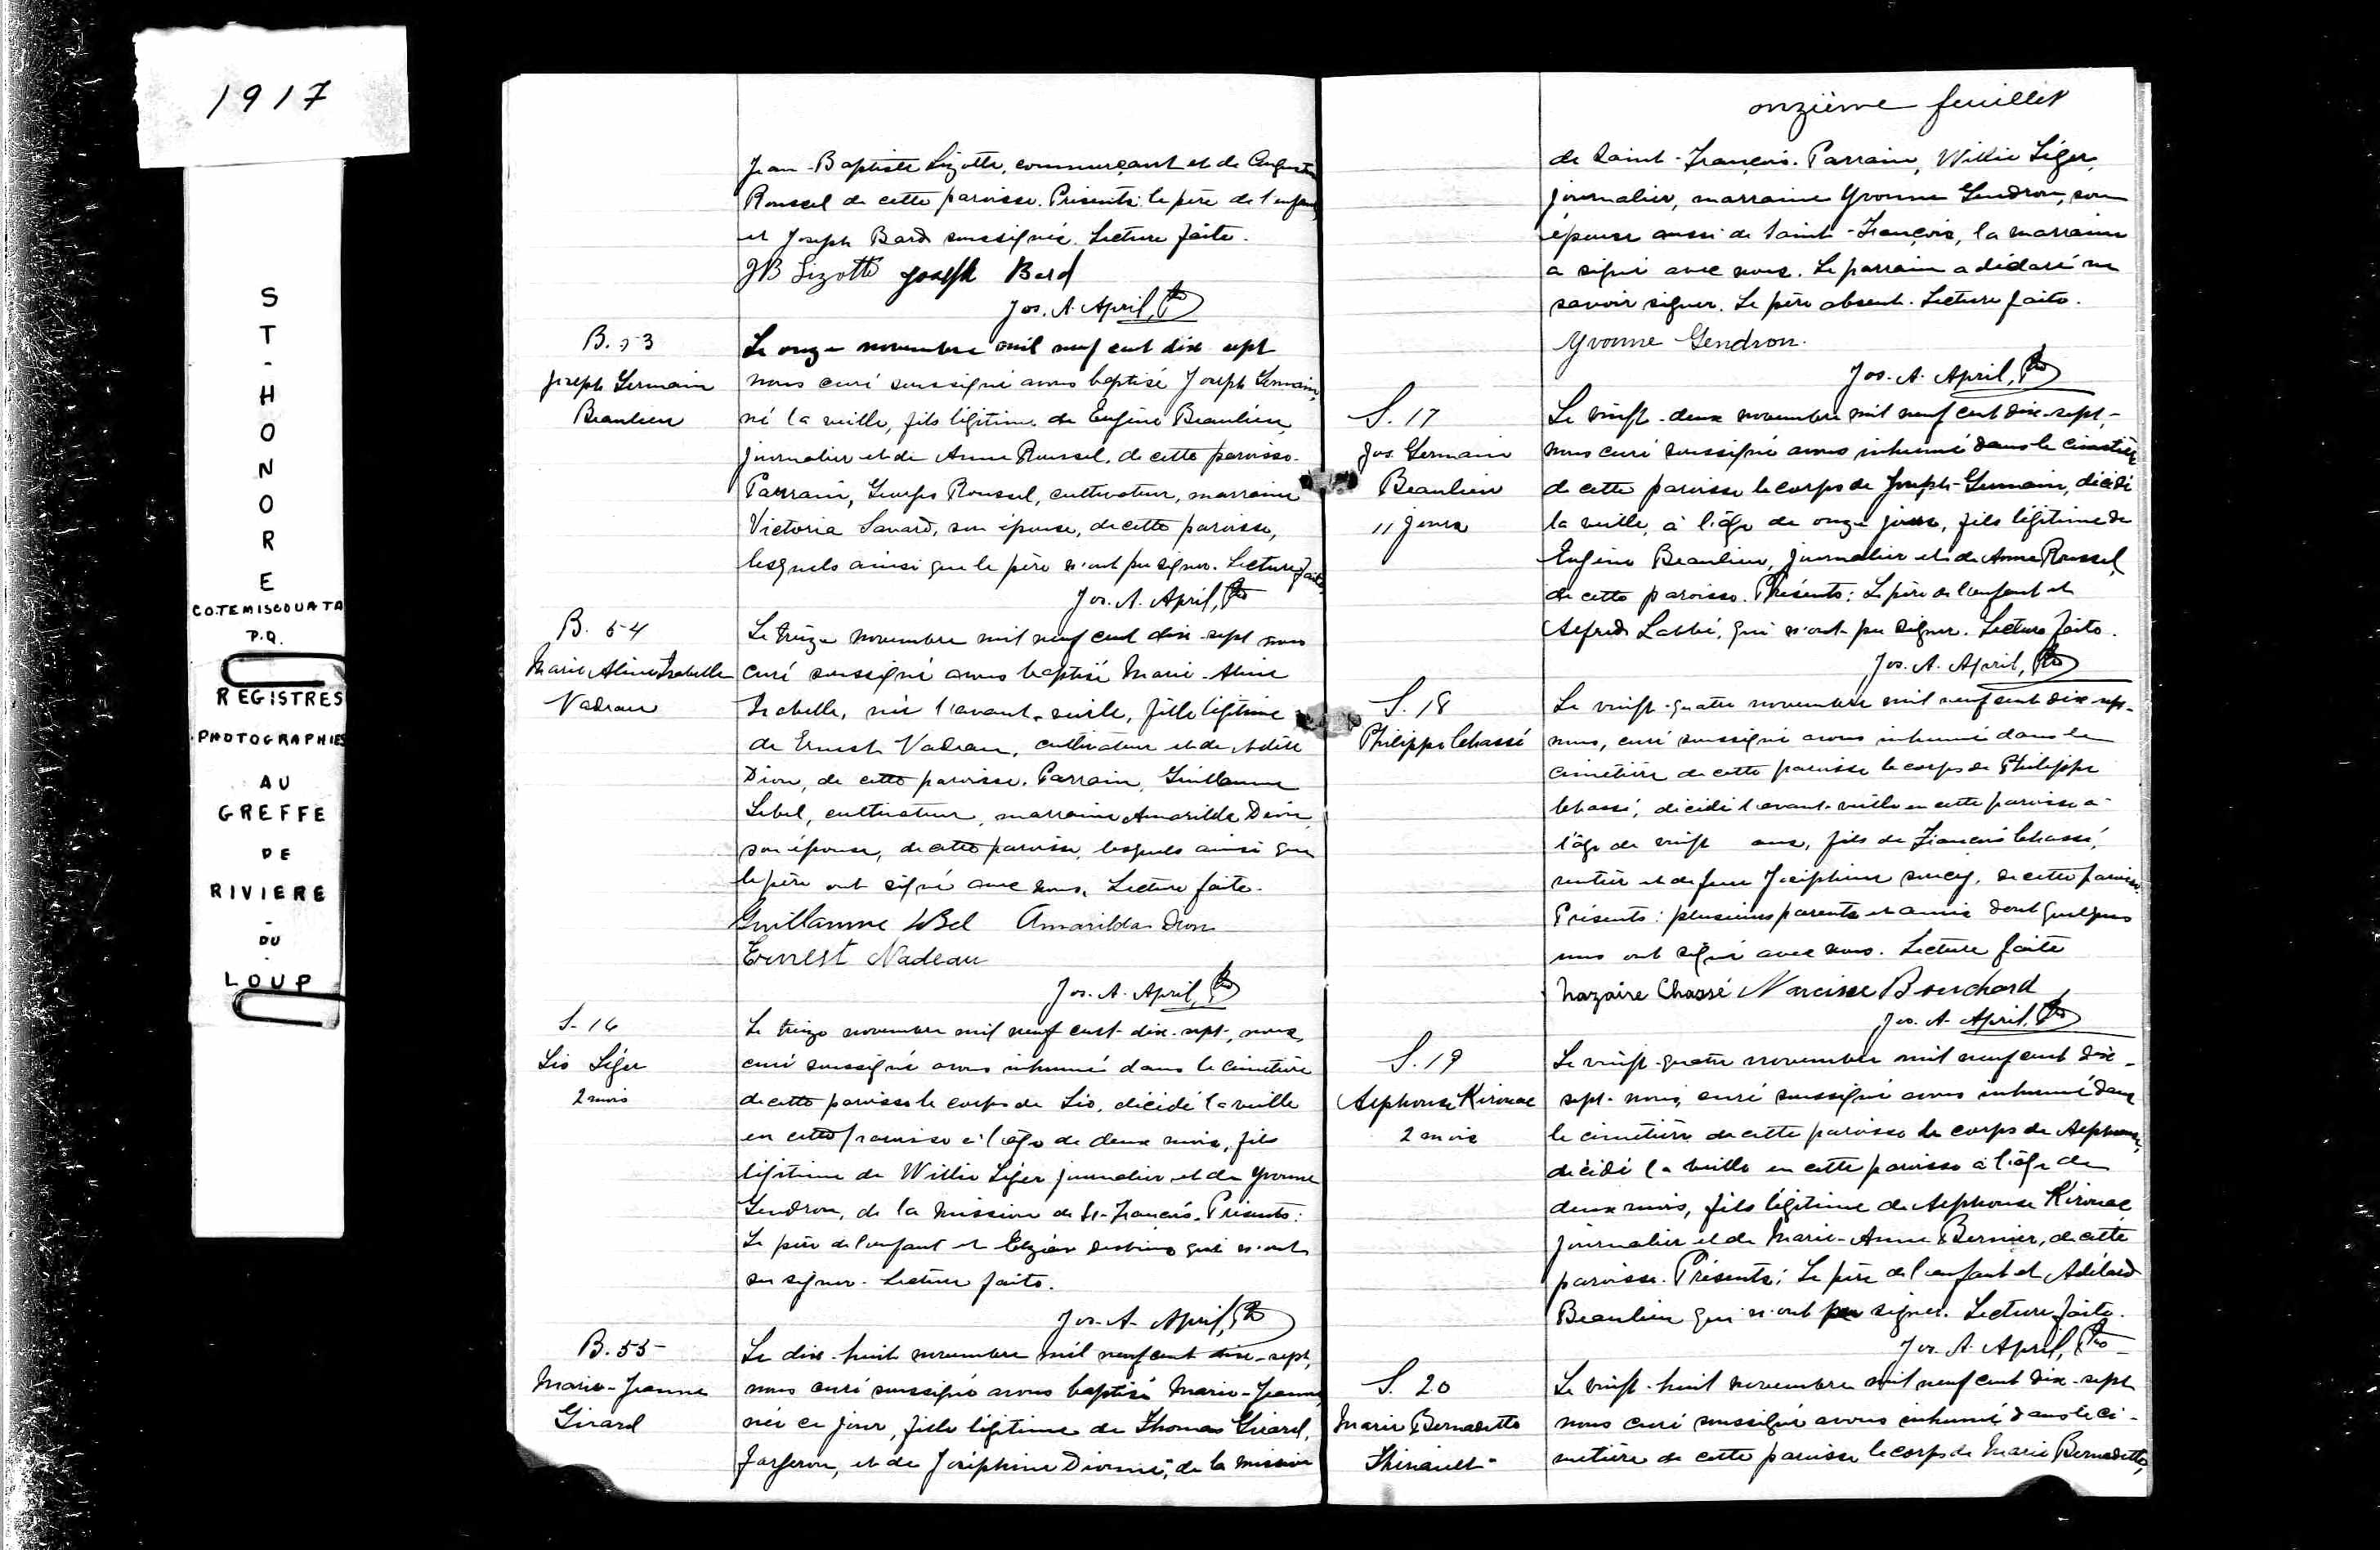 1917
ST-HONORE
CO.TEMISCOUATA
P.Q.
REGISTRES
PHOTOGRAPHIES
AU
GREFFE
DE
RIVIERE
-
DU
-
LOUP
Jean-Baptiste Lizotte, commerçant et de Augustine
Roussel de cette paroisse. Présents: le père de l'enfant
et Joseph Bard soussignés. Lecture faite.
JB Lizotte Joseph Bard
Jos. A. April, Ptre
B. 53
Joseph Germain
Beaulieu
Le onze novembre mil neuf cent dix sept
nous curé soussigné avons baptisé Joseph Germain,
né la veille, fils légitime de Eugène Beaulieu,
journalier et de Anna Roussel, de cette paroisse.
Parrain, Georges Roussel, cultivateur, marraine
Victoria Savard, son épouse, de cette paroisse,
lesquels ainsi que le père n'ont pu signer. Lecture faite
Jos. A. April, Ptre
B. 54
Marie Aline Isabelle
Nadeau
Le treize novembre mil neuf cent dix-sept nous
curé soussigné avons baptisé Marie-Aline
Isabelle, née l'avant-veille, fille légitime
de Ernest Nadeau, cultivateur et de Adèle
Dion, de cette paroisse. Parrain, Guillaume
Lebel, cultivateur, marraine Amarilda Dion,
son épouse, de cette paroisse, lesquels ainsi que
le père ont signé avec nous. Lecture faite.
Guillaume LeBel Amarilda Dion
Ernest Nadeau
Jos. A. April, Ptre
S. 16
Léo Léger
2 mois
Le treize novembre mil neuf cent-dix-sept, nous,
curé soussigné avons inhumé dans le cimetière
de cette paroisse le corps de Léo, décédé la veille
en cette paroisse à l'âge de deux mois, fils
légitime de Willie Léger journalier et de Yvonne
Gendron, de la mission de St-François. Présents:
Le père de l'enfant et Elzéar qui n'ont
su signer. Lecture faite.
Jos. A. April, Ptre
B. 55
Marie-Jeanne
Girard
Le dix-huit novembre mil neuf cent dix-sept,
nous curé soussigné avons baptisé Marie-Jeanne,
née ce jour, fille légitime de Thomas Girard,
forgeron, et de Joséphine Dionne, de la mission
onzième feuillet
de Saint-François. Parrain, Willie Léger,
journalier, marraine Yvonne Gendron, son
épouse aussi de Saint-François, la marraine
a signé avec nous. Le parrain a déclaré ne
savoir signer. Le père absent. Lecture faite.
Yvonne Gendron.
Jos. A. April, Ptre
S. 17
Jos. Germain
Beaulieu
11 jours
Le vingt-deux novembre mil neuf cent dix-sept,
nous curé soussigné avons inhumé dans le cimetière
de cette paroisse le corps de Joseph-Germain, décédé
la veille, à l'âge de onze jours, fils légitime de
Eugène Beaulieu, journalier et de Anna Roussel,
de cette paroisse. Présents: Le père de l'enfant et
Alfred Labbé, qui n'ont pu signer. Lecture faite.
Jos. A. April, Ptre
S. 18
Philippe Chassé
Le vingt-quatre novembre mil neuf cent dix-sept-
nous, curé soussigné avons inhumé dans le
cimetière de cette paroisse le corps de Philippe
Chassé, décédé l'avant-veille en cette paroisse à
l'âge de vingt ans, fils de François Chassé,
rentier et de feue Joséphine , de cette paroisse.
Présents: plusieurs parents et amis dont quelques
uns ont signé avec nous. Lecture faite
Nazaire Chassé Narcisse Bouchard
Jos. A. April, Ptre
S. 19
Alphonse Kirouac
2 mois
Le vingt-quatre novembre mil neuf cent dix-
sept- nous, curé soussigné avons inhumé dans
le cimetière de cette paroisse le corps de Alphonse,
décédé la veille en cette paroisse à l'âge de
deux mois, fils légitime de Alphonse Kirouac
journalier et de Marie-Anne Bernier, de cette
paroisse. Présents: Le père de l'enfant et Adélard
Beaulieu qui n'ont pu signer. Lecture faite.
Jos. A. April, Ptre
S. 20
Marie Bernadette
Thériault
Le vingt-huit novembre mil neuf cent dix-sept
nous curé soussigné avons inhumé dans le ci-
metière de cette paroisse le corps de Marie Bernadette,